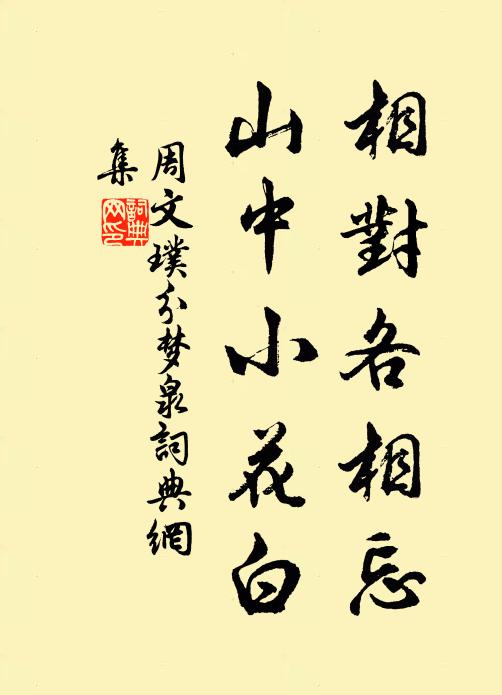 相對各相忘
山中小花白
周文璞分梦泉詞典網
集
詞典
网印